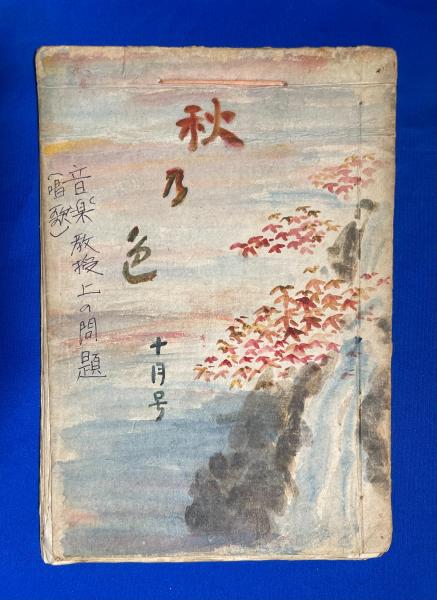 秋乃色
十月号
音楽教授上の問題
(唱歌)